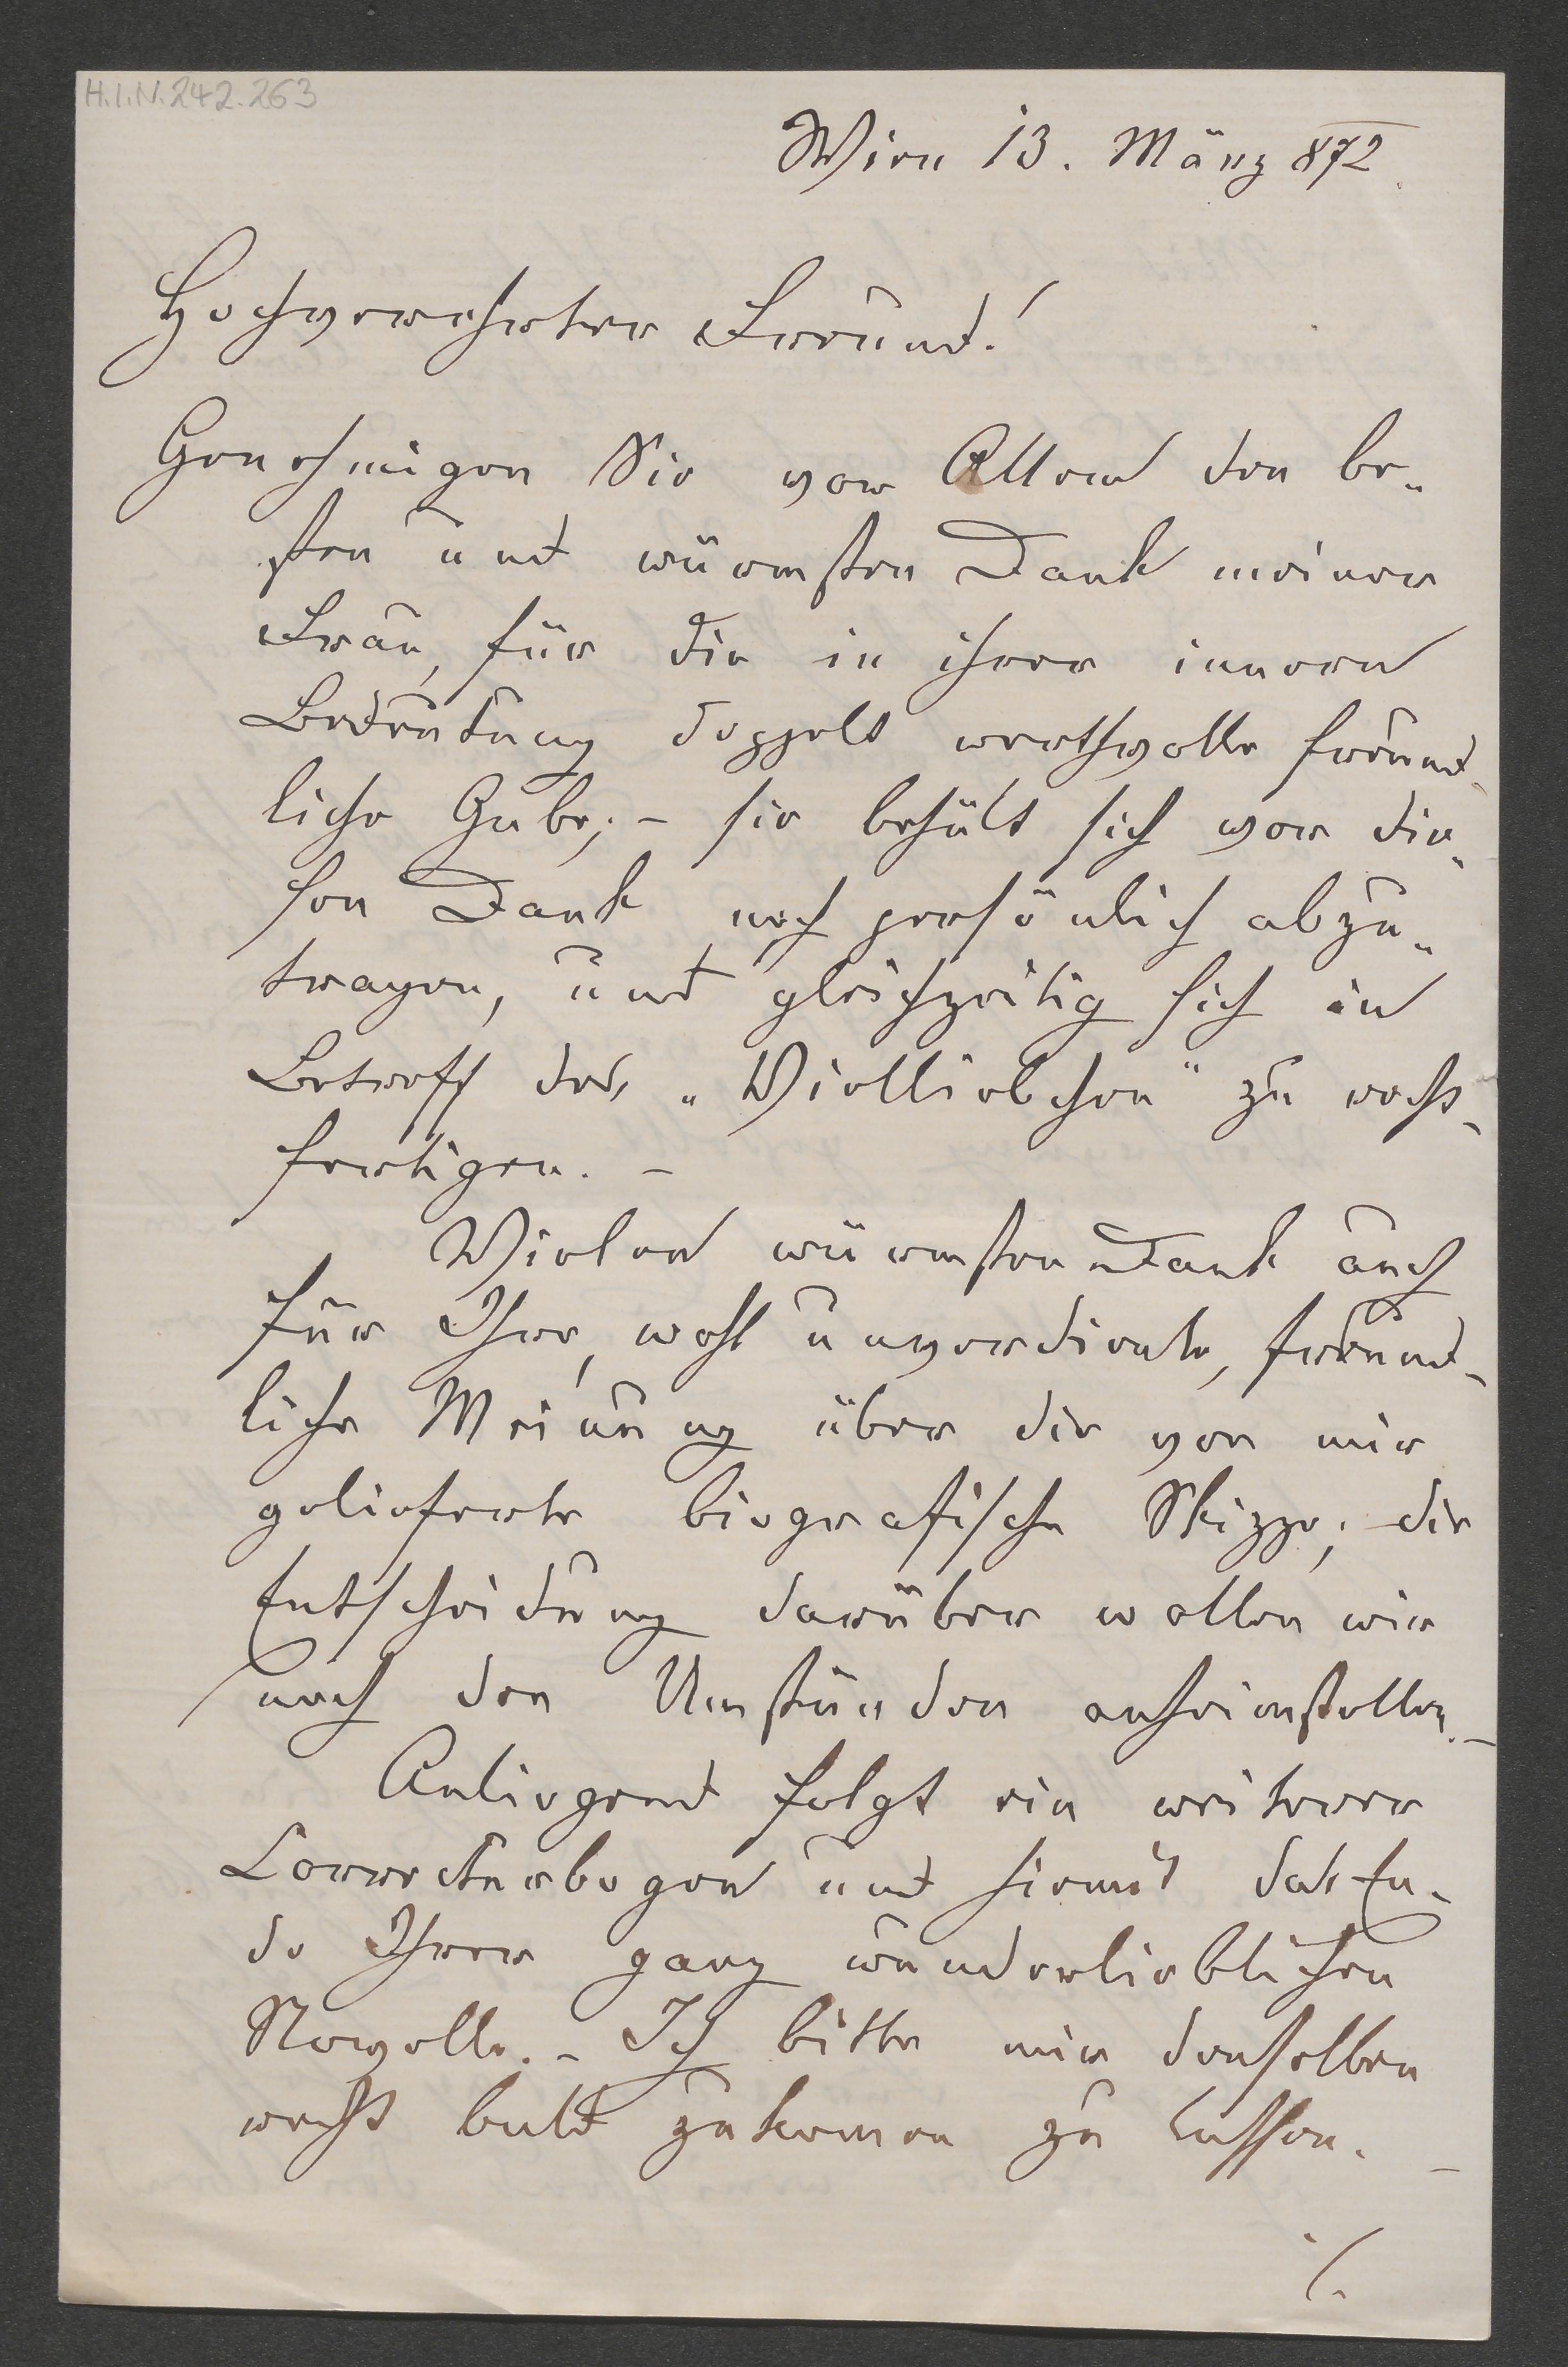 H.I.N. 242.263
Wien 13. März 872.
Hochverehrter Freund!
Genehmigen Sie vor Allem den be„
sten und wärmsten Dank meiner
Frau, für die in ihrer innern
Bedeutung doppelt werthvolle freund„
liche Gabe; – sie behält sich vor die„
sen Dank noch persönlich abzu„
tragen, und gleichzeitig sich in
Betreff des „Vielliebchen" zu recht„
fertigen. –
Vielen wärmsten Dank auch
für Ihre, wohl unverdiente, freund„
liche Meinung über die von mir
gelieferte biografische Skizze; die
Entscheidung darüber wollen wir
noch den Umständen anheimstellen. –
Anliegend folgt ein weiterer
Correcturbogen und hiemit das En„
de Ihrer ganz wunderlieblichen
Novelle. – Ich bitte mir denselben
recht bald zukomen zu lassen. –
./.